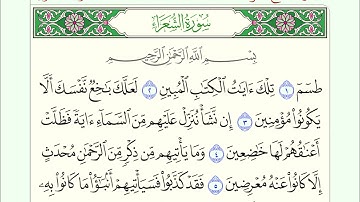 سُورَةُ الشُّعَرَاءِ
بِسْمِ اللَّهِ الرَّحْمَٰنِ الرَّحِيمِ
طسٓمٓ ١ تِلْكَ ءَايَٰتُ ٱلْكِتَٰبِ ٱلْمُبِينِ ٢ لَعَلَّكَ بَٰخِعٌ نَّفْسَكَ أَلَّا
يَكُونُوا۟ مُؤْمِنِينَ ٣ إِن نَّشَأْ نُنَزِّلْ عَلَيْهِم مِّنَ ٱلسَّمَآءِ ءَايَةً فَظَلَّتْ
أَعْنَٰقُهُمْ لَهَا خَٰضِعِينَ ٤ وَمَا يَأْتِيهِم مِّن ذِكْرٍ مِّنَ ٱلرَّحْمَٰنِ مُحْدَثٍ
إِلَّا كَانُوا۟ عَنْهُ مُعْرِضِينَ ٥ فَقَدْ كَذَّبُوا۟ فَسَيَأْتِيهِمْ أَنۢبَٰٓؤُا۟ مَا كَانُوا۟ بِهِۦ